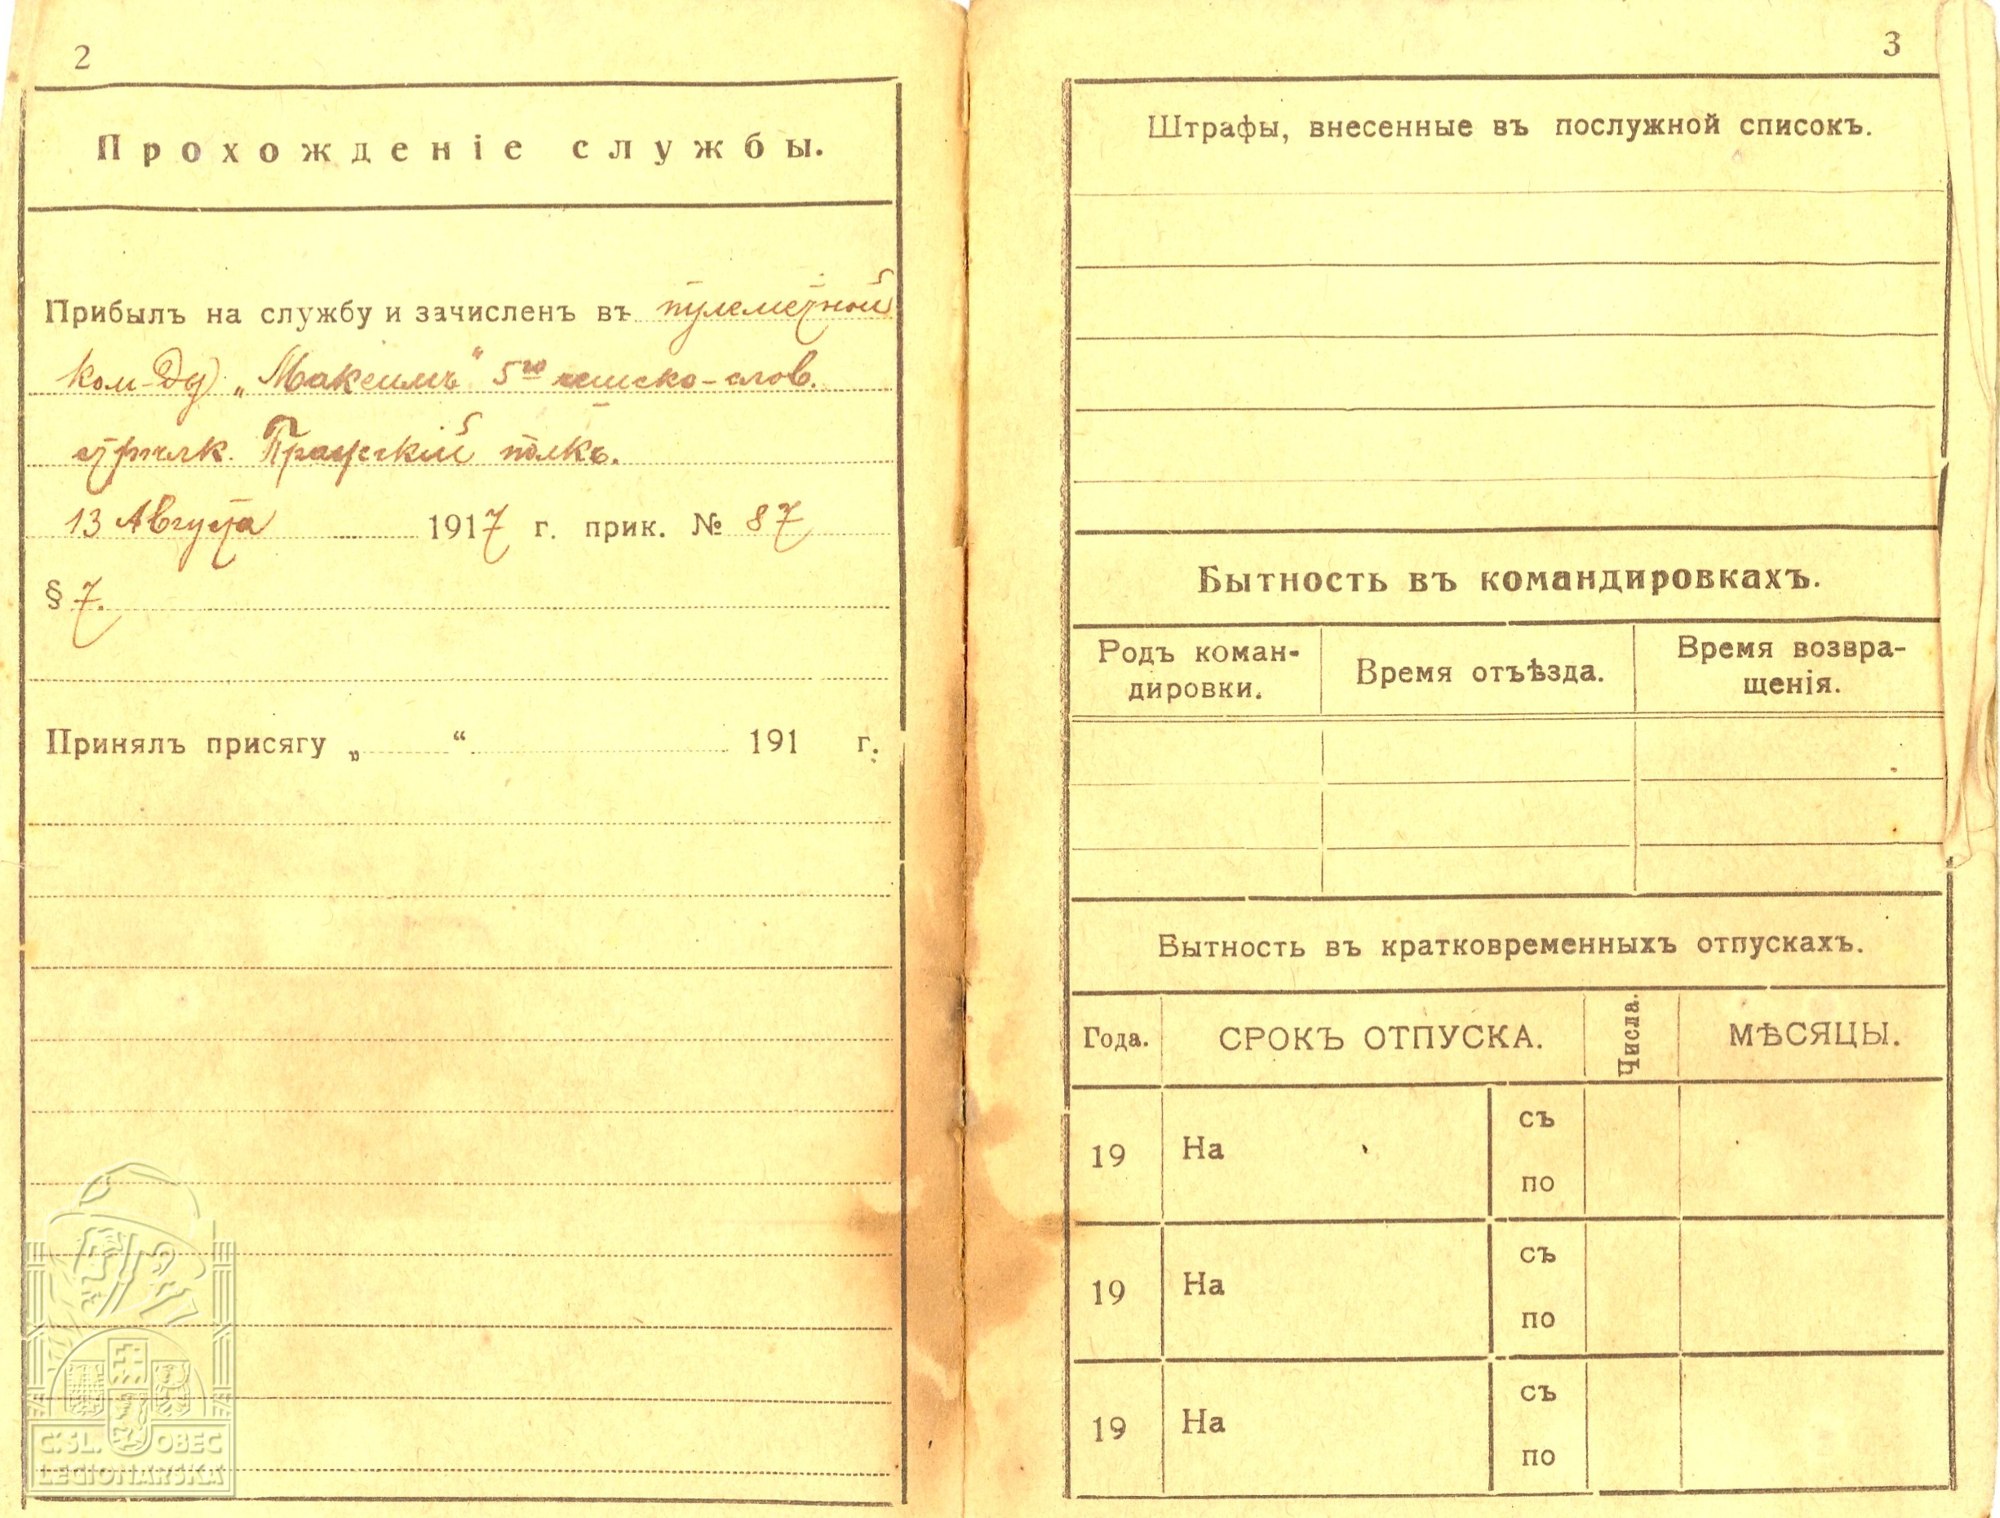 2
Прохожденіе службы.
Прибылъ на службу и зачисленъ въ пулеметной
ком-ду „Максимъ“ 5го чешско-слов.
стрѣлк. Пражскій полкъ.
13 Августа 1917 г. прик. № 87
§ 7.
Принялъ присягу „ “ 191 г.
C.SL. OBEC
LEGIONÁŘSKÁ
3
Штрафы, внесенные въ послужной списокъ.
Бытность въ командировкахъ.
Родъ коман-
дировки.
Время отъѣзда.
Время возвра-
щенія.
Бытность въ кратковременныхъ отпускахъ.
Года. СРОКЪ ОТПУСКА. Числа. МѢСЯЦЫ.
19 На съ
по
19 На съ
по
19 На съ
по